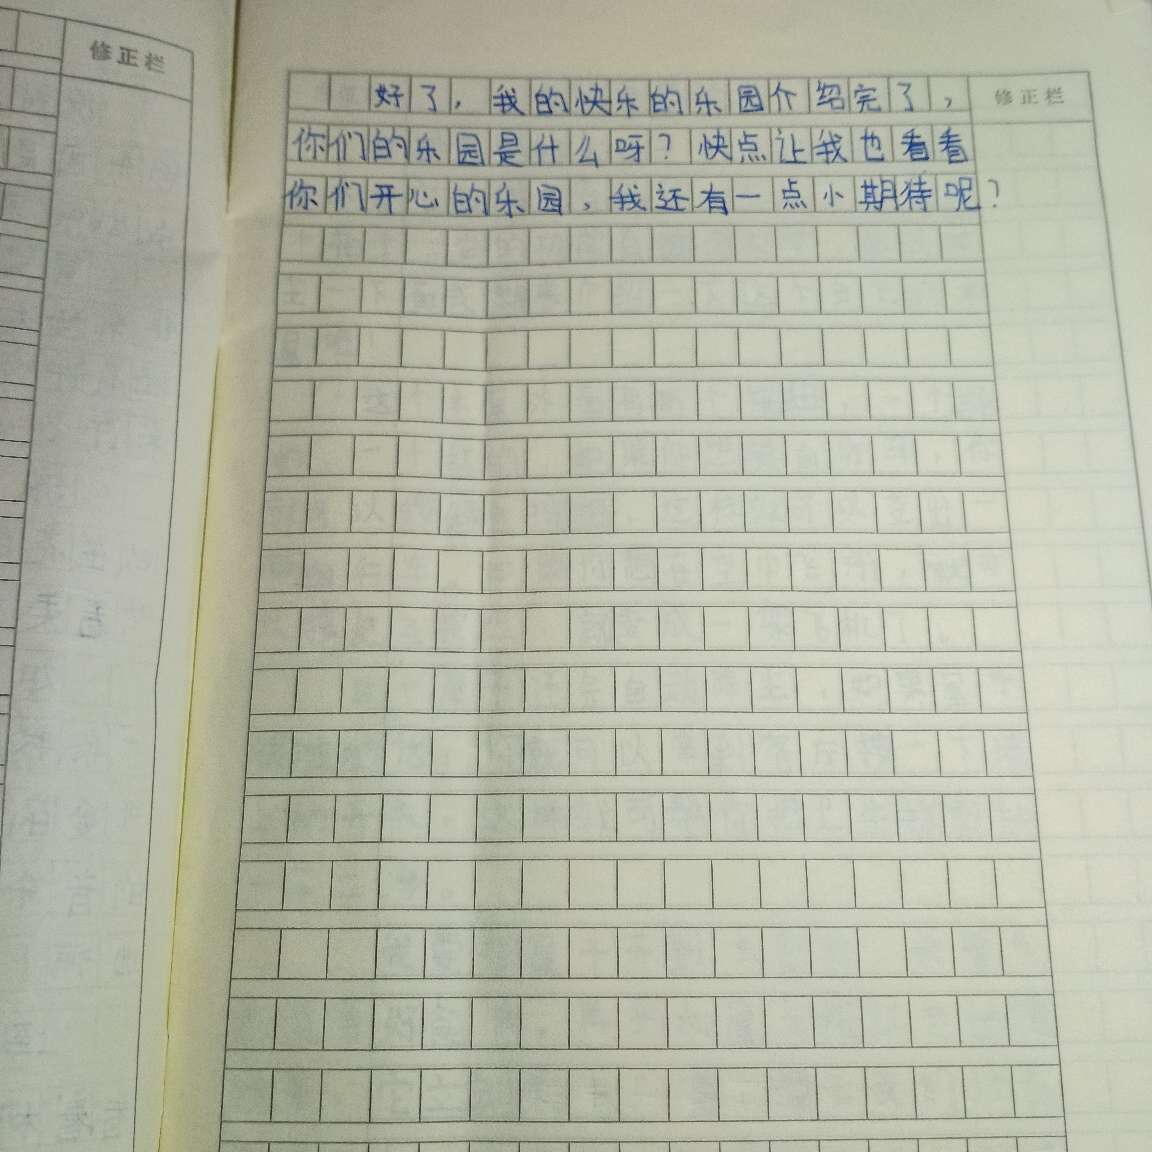 修正栏
修正栏
好了，我的快乐的乐园介绍完了，
你们的乐园是什么呀？快点让我也看看
你们开心的乐园，我还有一点小期待呢？